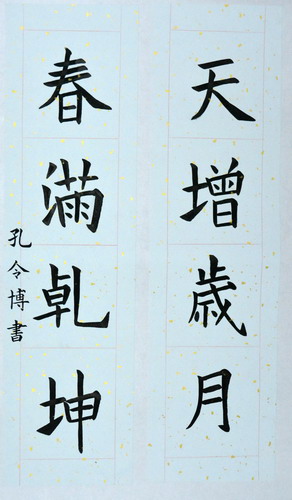 天增歲月
春滿乹坤
孔令博書